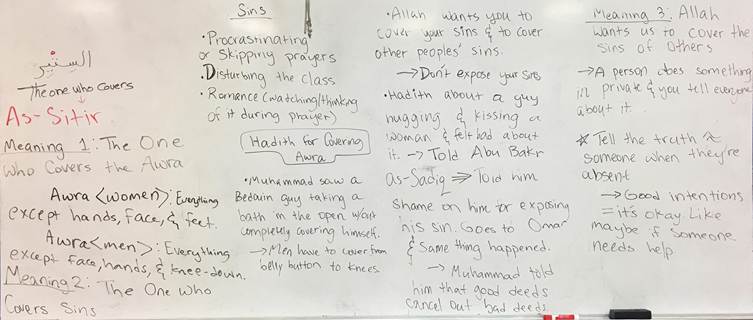 السِتِّير
The one who covers
As-Sitir
Meaning 1: The One
Who Covers the Awra
Awra <women>: Everything
except hands, face, & feet.
Awra <men>: Everything
except face, hands, & knee-down.
Meaning 2: The One Who
Covers Sins
Sins
• Procrastinating
or Skipping prayers
• Disturbing the class
• Romance (watching/thinking
of it during prayer)
Hadith for Covering
Awra
• Muhammad saw a
Bedouin guy taking a
bath in the open w/out
completely covering himself.
→ Men have to cover from
belly button to knees.
• Allah wants you to
cover your sins & to cover
other peoples' sins.
→ Don't expose your sins
• Hadith about a guy
hugging & kissing a
woman & felt bad about
it. → Told Abu Bakr
as-Sadiq ⇒ Told him
shame on him for exposing
his sin. Goes to Omar
& Same thing happened.
→ Muhammad told
him that good deeds
cancel out bad deeds
Meaning 3: Allah
wants us to cover the
sins of others
→ A person does something
in private & you tell everyone
about it.
* Tell the truth
someone when they're
absent
→ Good intentions
= it's okay like
maybe if someone
needs help